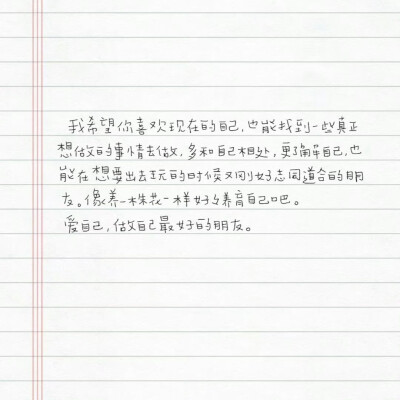 我希望你喜欢现在的自己,也能找到一些真正
想做的事情去做,多和自己相处,更了解自己,也
能在想要出去玩的时候又刚好志同道合的朋
友。像养一株花一样好好养高自己吧。
爱自己,做自己最好的朋友。